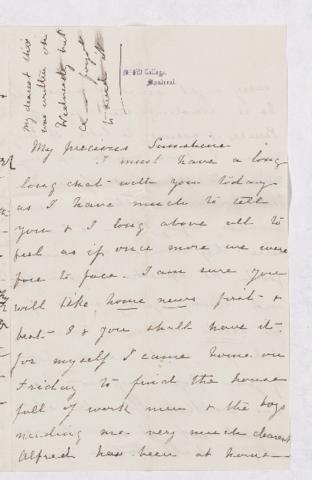 My dearest this
was written on
Wednesday but
forgot
to send it
McGill College,
Montreal.
My precious Sunshine
I must have a long
long chat with you today
as I have much to tell
you & I long above all to
feel as if once more we were
face to face. I am sure you
will like home news first &
best - I & you shall have it.
for myself I came home on
Friday to find the house
full of work men & the boys
needing me very much dearest
Alfred has been at home